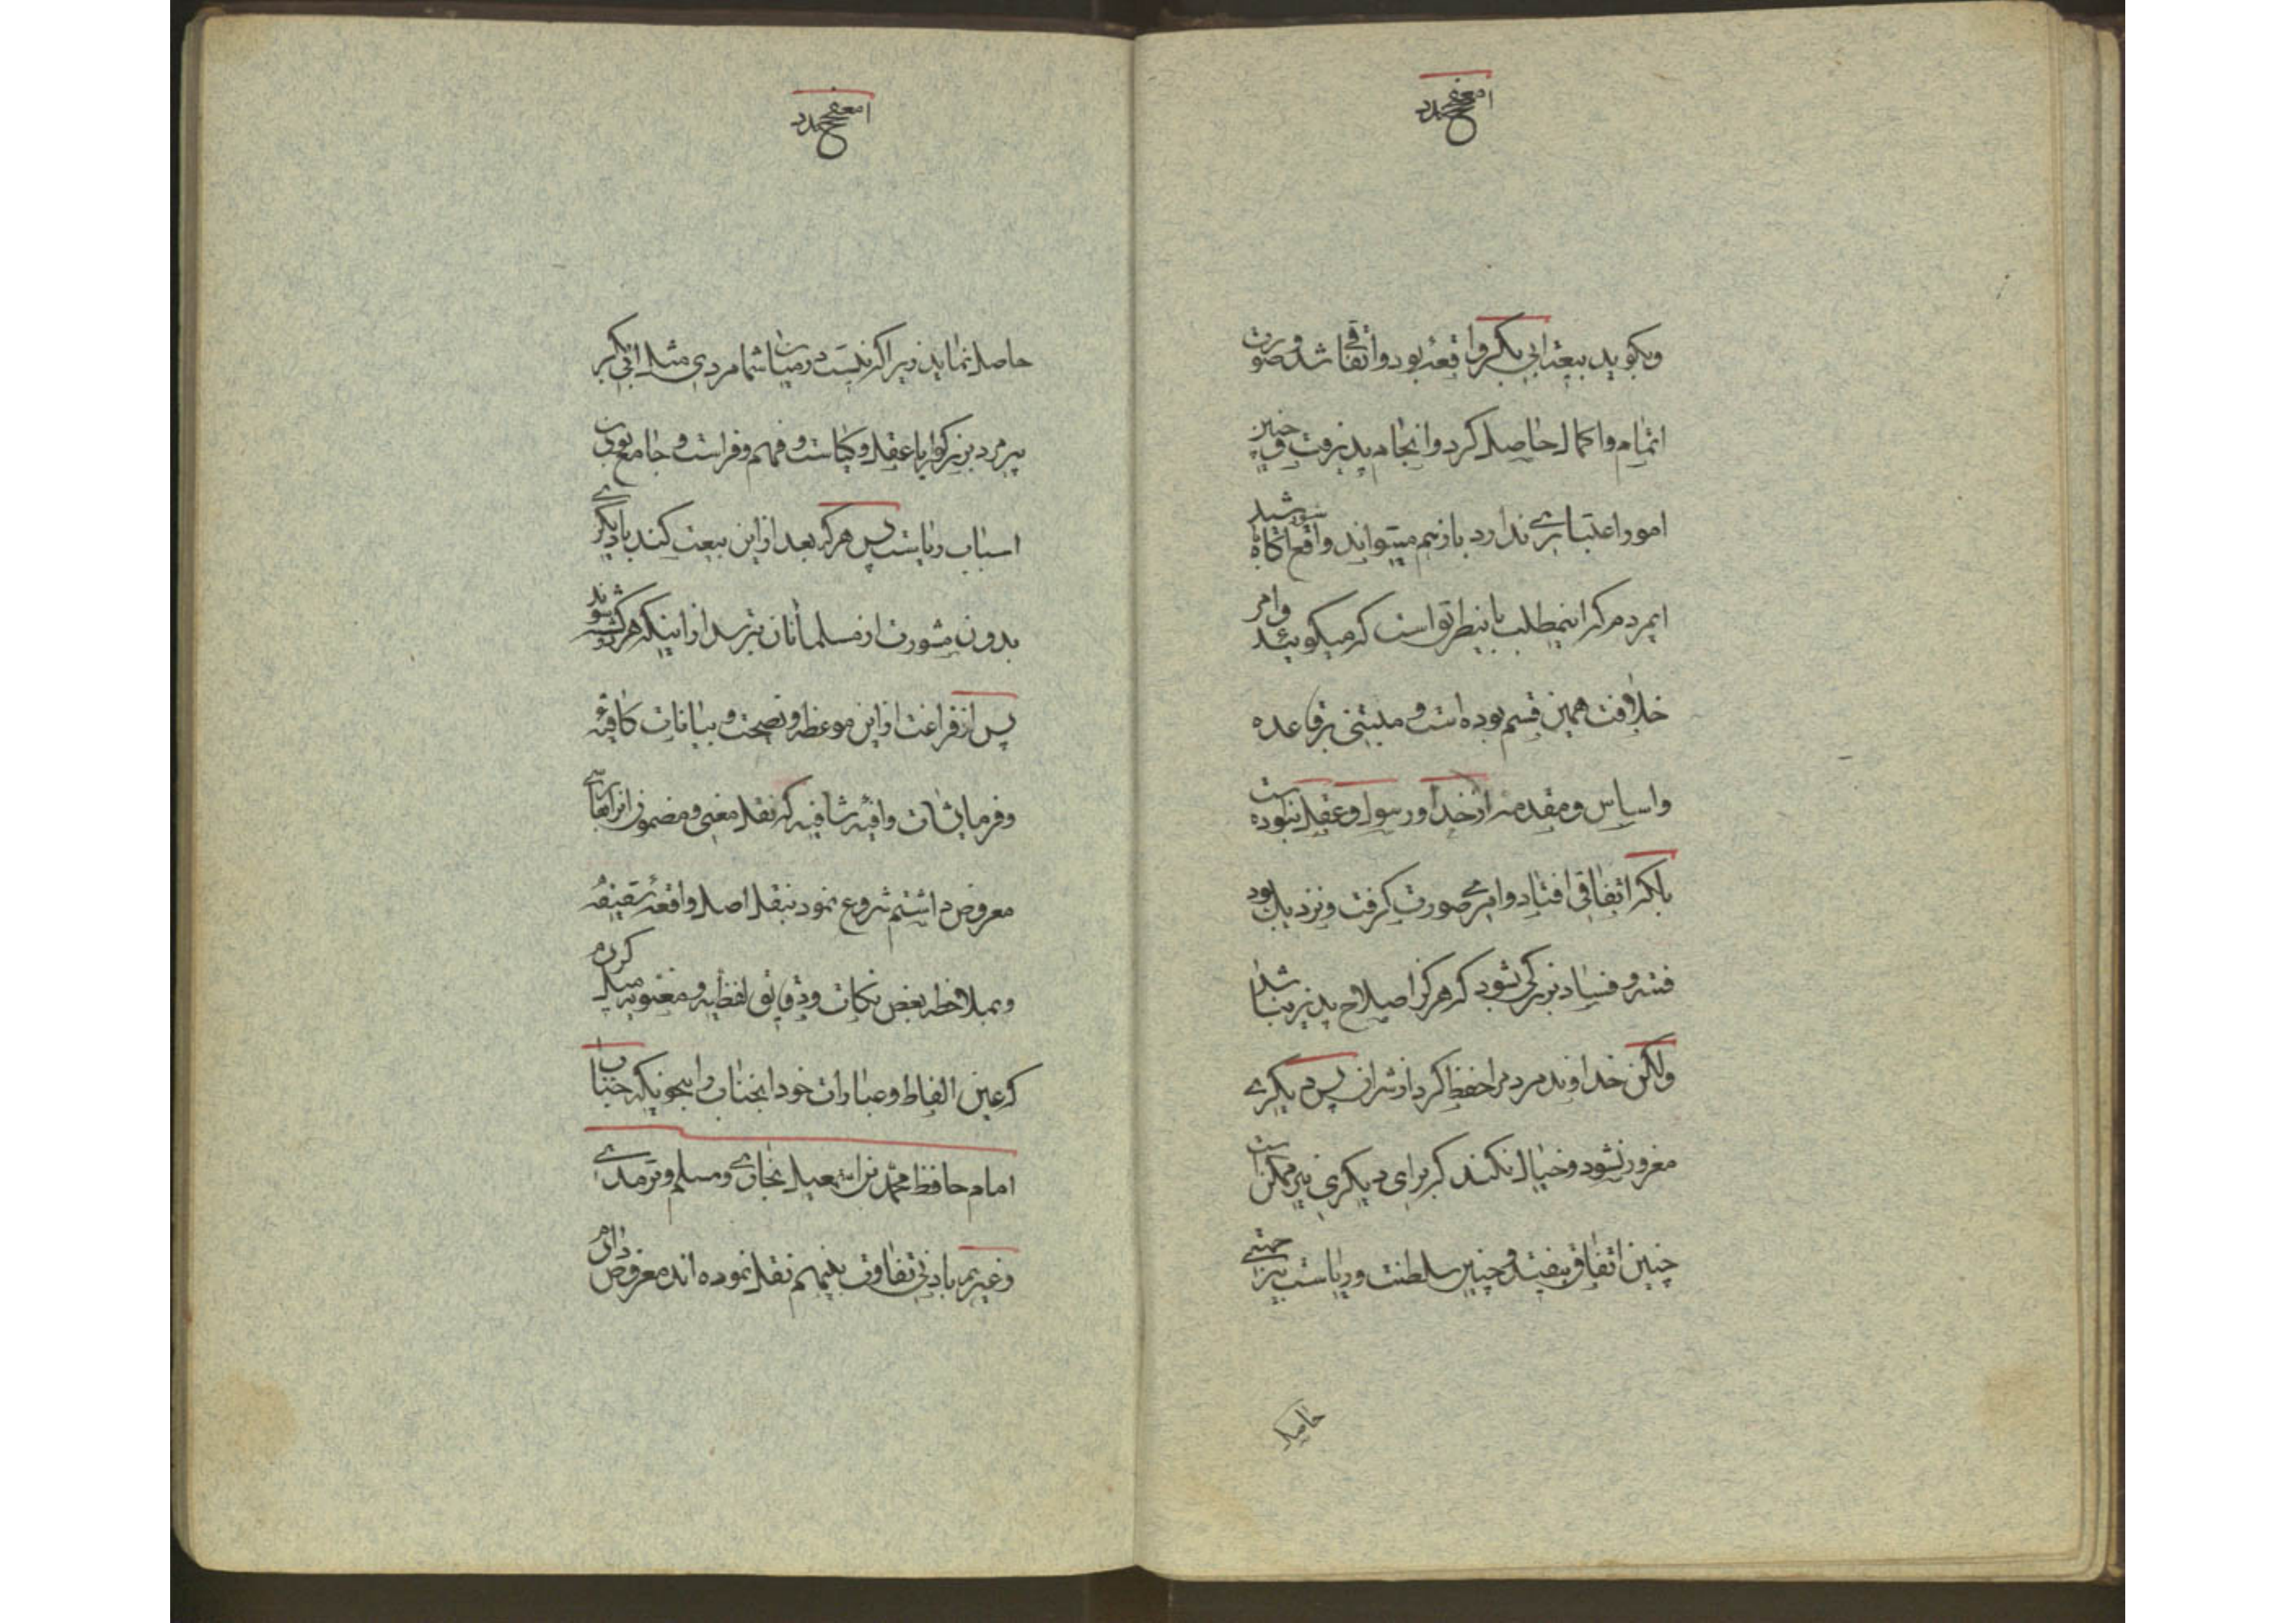 وبگوید بیعت ابی بکر واقعه بود و اتفاقی شد و صورت
اتمام و اکمال حاصل کرد و انجام پذیرفت و چنین
امور اعتباری ندارد باز هم میتواند واقع
ایمردم که اینمطلب باینطریق است که میگوئید و امر
خلافت همین قسم بوده است و مبتنی بر قاعده
و اساس و مقدمه از خدا و رسول و عقل نبوده است
بلکه اتفاقی افتاد و امری صورت گرفت و نزدیک بود
فتنه و فساد بزرگی شود که هرگز اصلاح پذیر نباشد
ولکن خداوند مردم را حفظ کرد از شر آن پس دیگری
مغرور نشود و خیال نکند که برای دیگری نیز ممکن است
چنین اتفاق بیفتد و چنین سلطنت و ریاست
حاصل
حاصل نماید زیرا که نیست در میان شما مردی مثل ابی بکر
پیرمرد بزرگوار با عقل و کیاست و فهم و فراست و جامع بودن
اسباب ریاست پس هر که بعد از این بیعت کند با دیگری
بدون مشورت از مسلمانان بترسد از اینکه هر دو کشته شوند
پس از فراغت از این موعظه و نصیحت و بیانات کافیه
و فرمایشات وافیه شافیه که نقل معنی و مضمون آنرا بفارسی
معروض داشتم شروع نمود بنقل اصل واقعه سقیفه
و بملاحظه بعض نکات و دقایق لفظیه و معنویه میل کردم
که عین الفاظ و عبارات خود آنجناب را بنحویکه جناب
امام حافظ محمد بن اسمعیل بخاری و مسلم و ترمدی
و غیرهم بادنی تفاوت بلیفهم نقل نموده اند معروض دارم